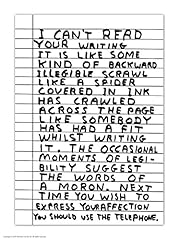 I CAN'T READ
YOUR WRITING
IT IS LIKE SOME
KIND OF BACKWARD
ILLEGIBLE SCRAWL
LIKE A SPIDER
COVERED IN INK
HAS CRAWLED
ACROSS THE PAGE
LIKE SOMEBODY
HAS HAD A FIT
WHILST WRITING
IT. THE OCCASIONAL
MOMENTS OF LEGI-
BILITY SUGGEST
THE WORDS OF
A MORON. NEXT
TIME YOU WISH TO
EXPRESS YOUR AFFECTION
YOU SHOULD USE THE TELEPHONE.